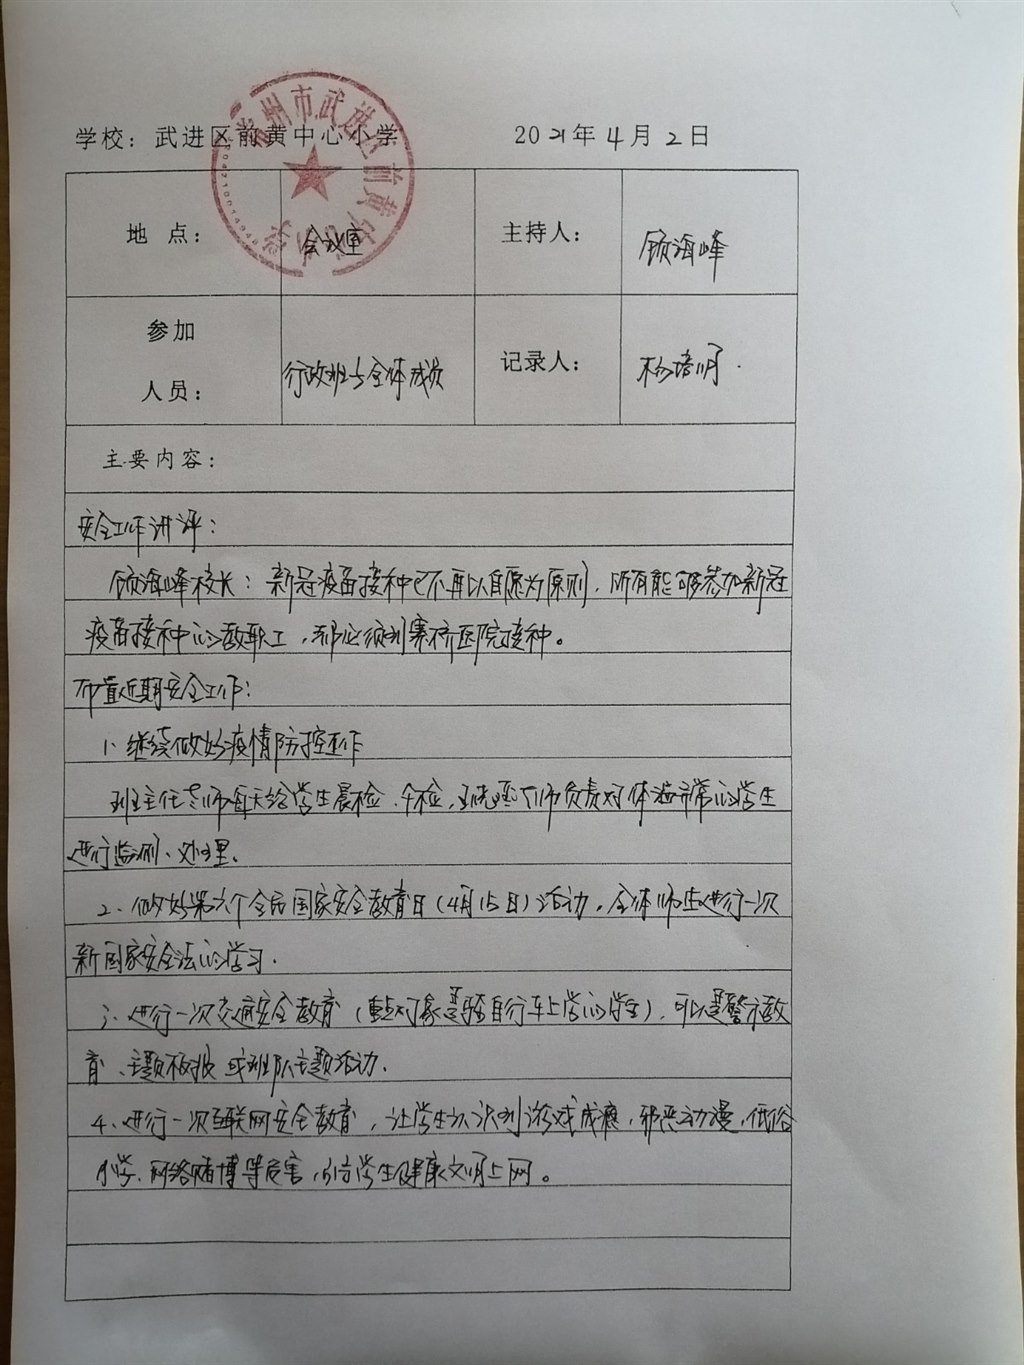 学校：武进区前黄中心小学 2021年4月2日
常州市武进区前黄中心小学
地点： 会议室 主持人： 顾海峰
参加人员： 行政班子全体成员 记录人： 杨培明
主要内容：
安全工作讲评：
顾海峰校长：新冠疫苗接种已不再以自愿为原则，所有能够参加新冠
疫苗接种的教职工，都必须到寨桥医院接种。
布置近期安全工作：
1、继续做好疫情防控工作
班主任老师每天给学生晨检、午检，负责对体温异常的学生
进行监测、处理。
2、做好第六个全民国家安全教育日（4月15日）活动。全体师生进行一次
新国家安全法的学习.
3、进行一次交通安全教育（重点对象是骑自行车上学的学生），可以是警示教
育、主题板报或班队主题活动.
4、进行一次互联网安全教育，让学生认识到游戏成瘾，邪恶动漫，低俗
小学、网络赌博等危害，引导学生健康文明上网。